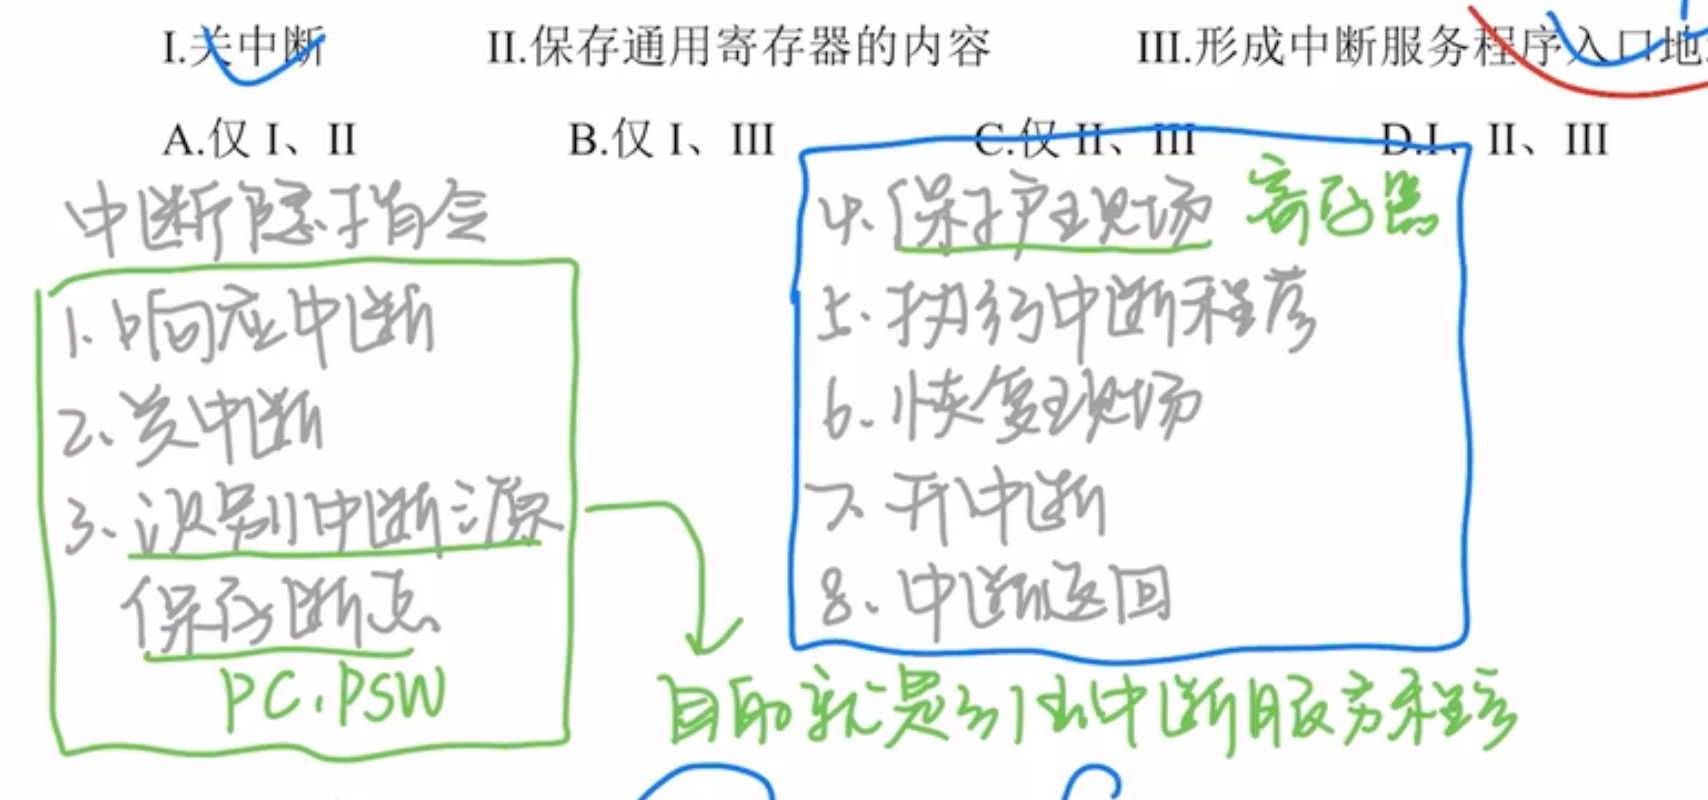 I.关中断 II.保存通用寄存器的内容 III.形成中断服务程序入口地
A.仅 I、II B.仅 I、III C.仅 II、III D.I、II、III
中断隐指令
1.响应中断
2.关中断
3.识别中断源
保存断点
PC.PSW
4.保护现场 寄存器
5.执行中断程序
6.恢复现场
7.开中断
8.中断返回
目的就是引出中断服务程序